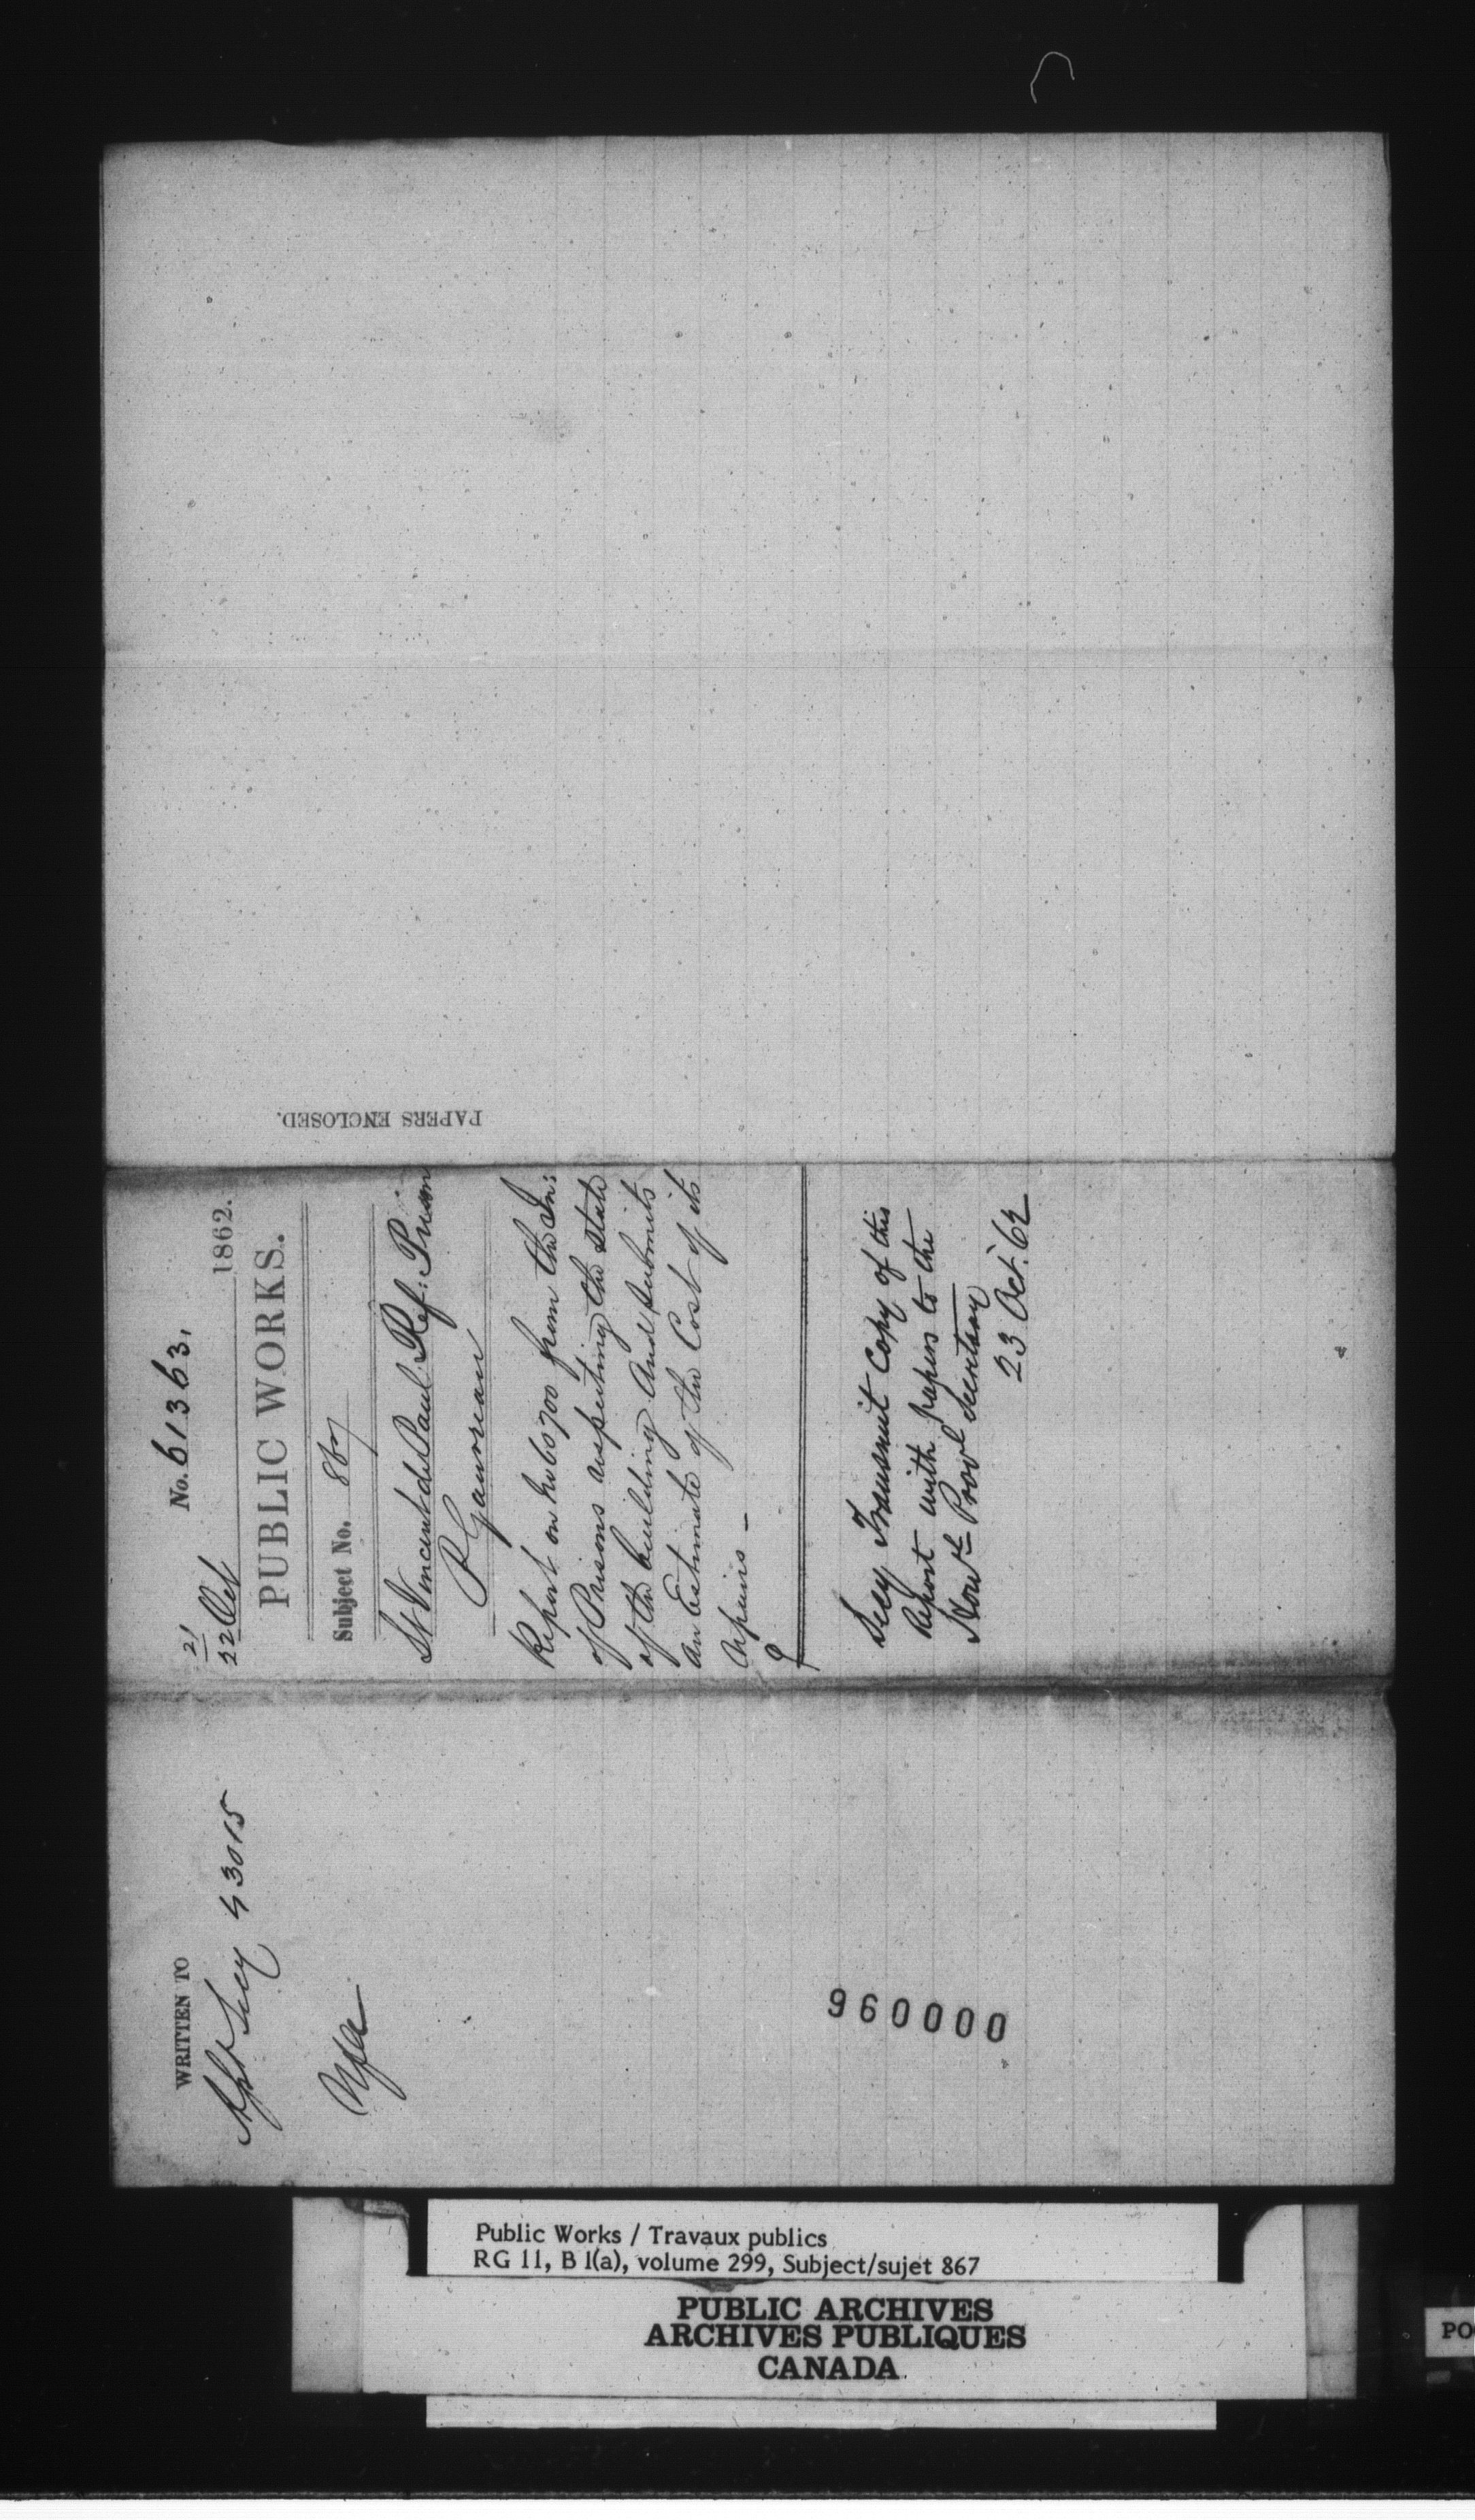 PAPERS ENCLOSED.
No. 61363.
21
22 Oct 1862.
PUBLIC WORKS.
Subject No. 867
St Vincent de Paul Ref: Prison
P Gauvreau
Report on No 60700 from the In:
of Prisons respecting the state
of the building And submits
an Estimate of the Cost of its
repairs -
Secy Transmit Copy of this
Report with papers to the
Honble Provl Secretary
23 Oct. 62
WRITTEN TO
Secy 43015
000096
Public Works / Travaux publics
RG 11, B 1(a), volume 299, Subject/sujet 867
PUBLIC ARCHIVES
ARCHIVES PUBLIQUES
CANADA
PO